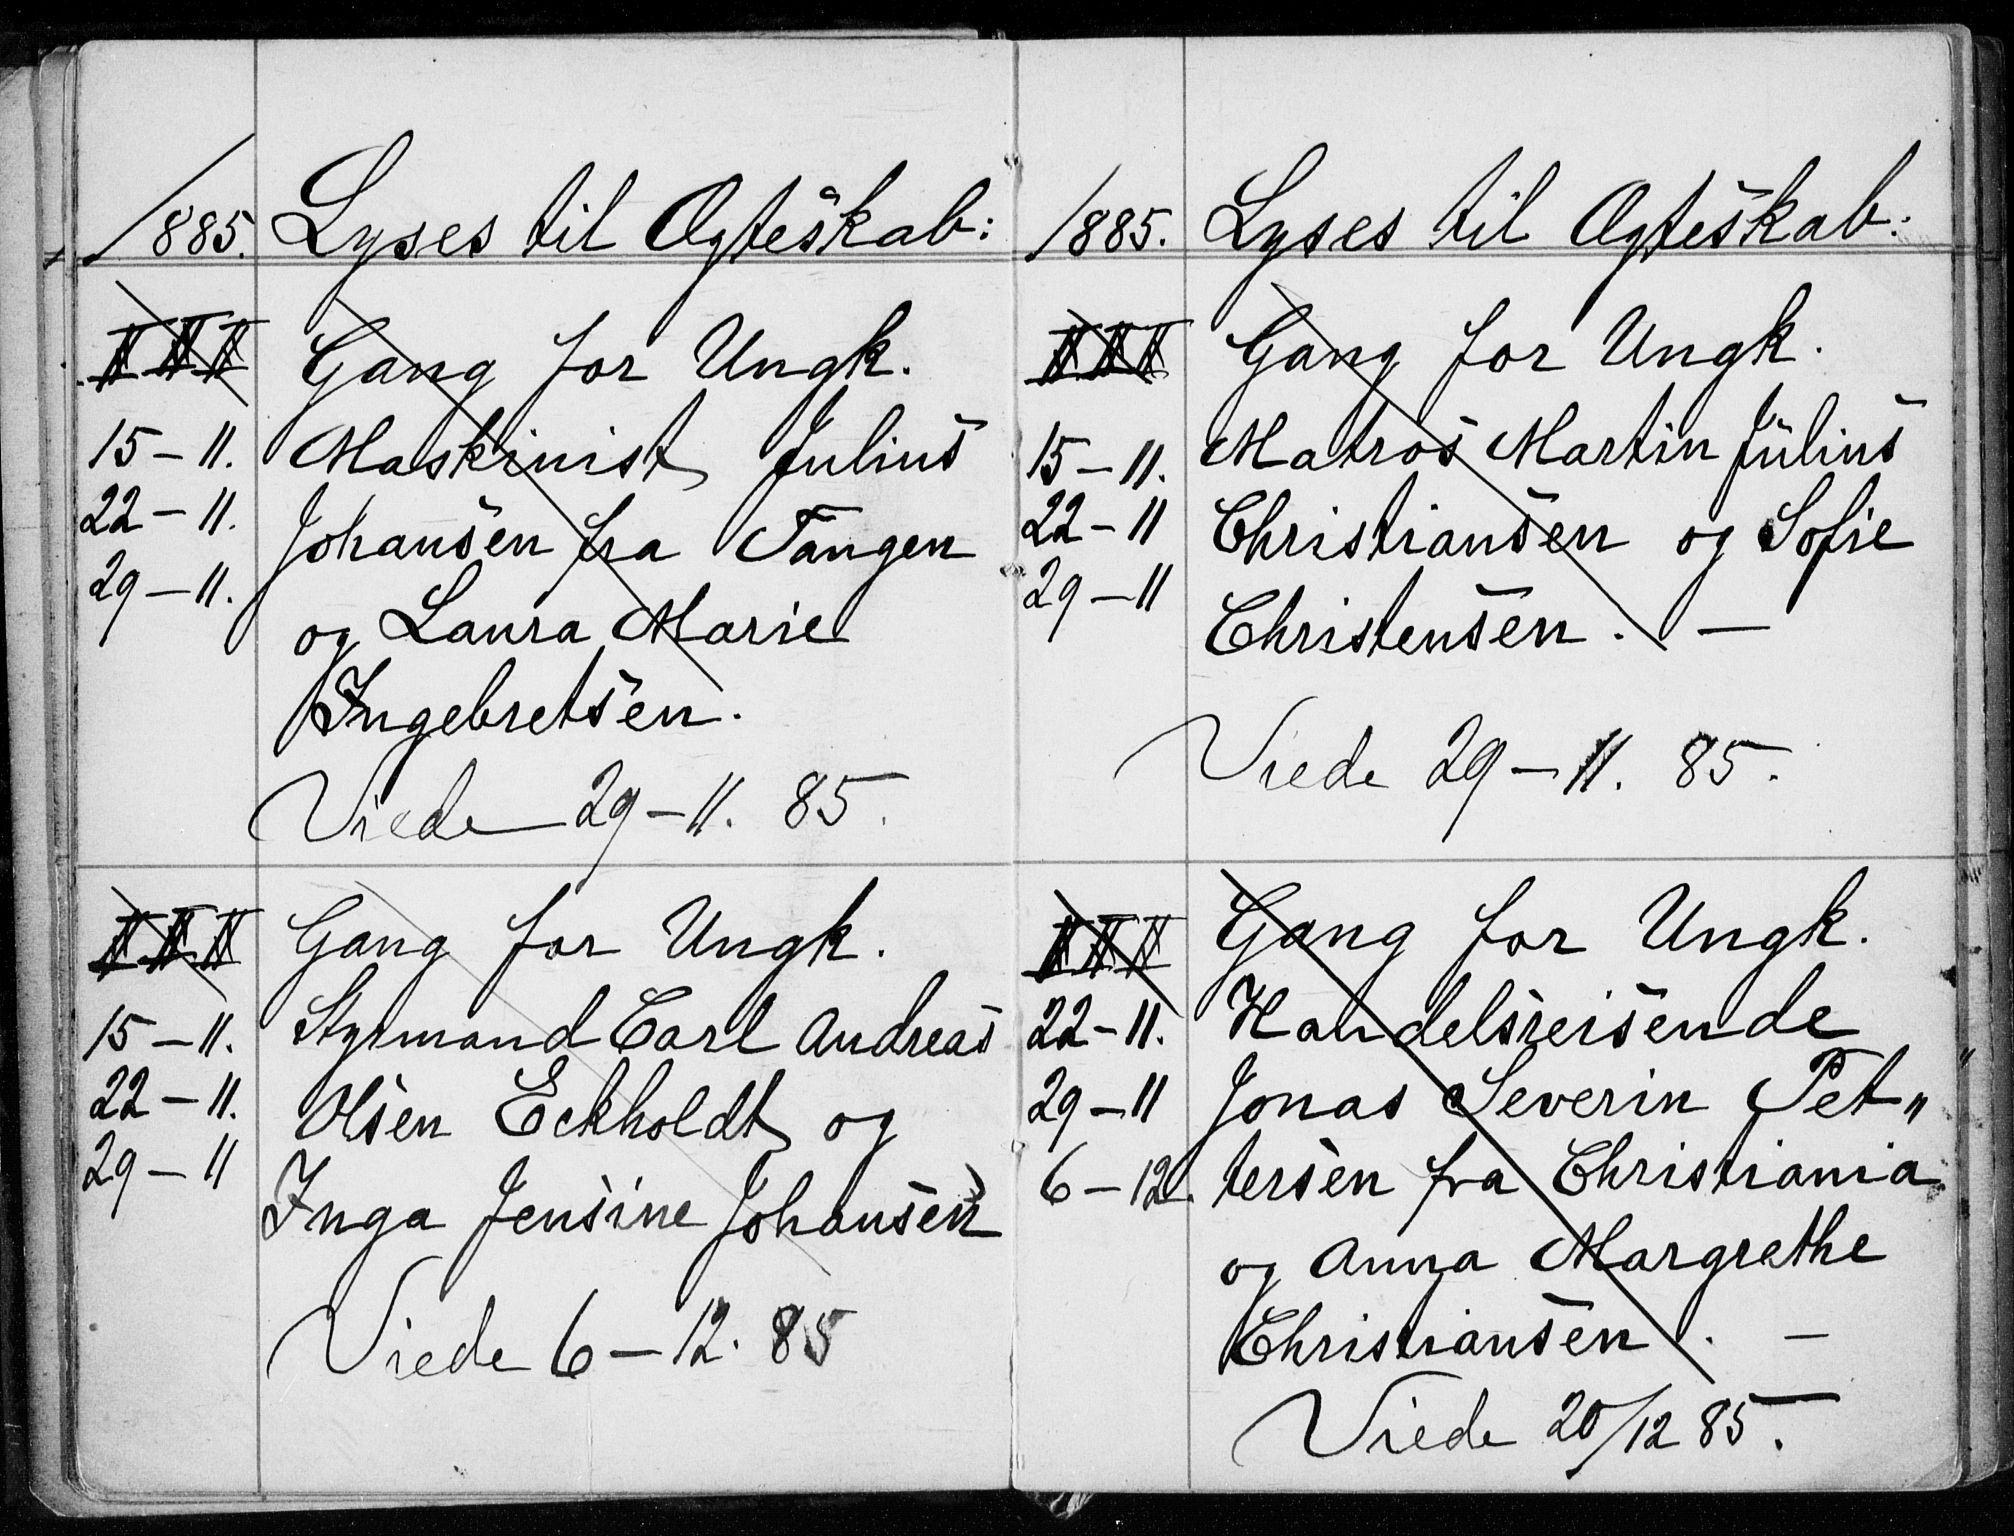 1885. Lyses til Ægteskab:
I II III Gang for Ungk.
15-11. Maskinist Julius
22-11. Johansen fra Tangen
29-11. og Laura Marie
Ingebretsen.
Viede 29-11. 85.
I II III Gang for Ungk.
15-11. Styrmand Carl Andreas
22-11. Olsen Eckholdt og
29-11 Inga Jensine Johansen
Viede 6-12. 85
1885. Lyses til Ægteskab:
I II III Gang for Ungk.
15-11. Matros Martin Julius
22-11 Christiansen og Sofie
29-11 Christensen. —
Viede 29-11. 85.
I II III Gang for Ungk.
22-11. Handelsreisende
29-11 Jonas Severin Pet„
6-12. tersen fra Christiania
og Anna Margrethe
Christiansen. —
Viede 20/12 85.